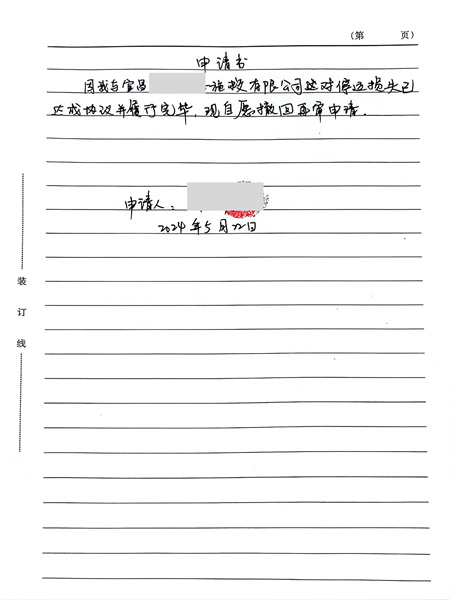 (第 页)
申请书
因我与宜昌 施救有限公司达对停运损失已
达成协议并履行完毕,现自愿撤回再审申请.
申请人:
2024年5月22日
装
订
线